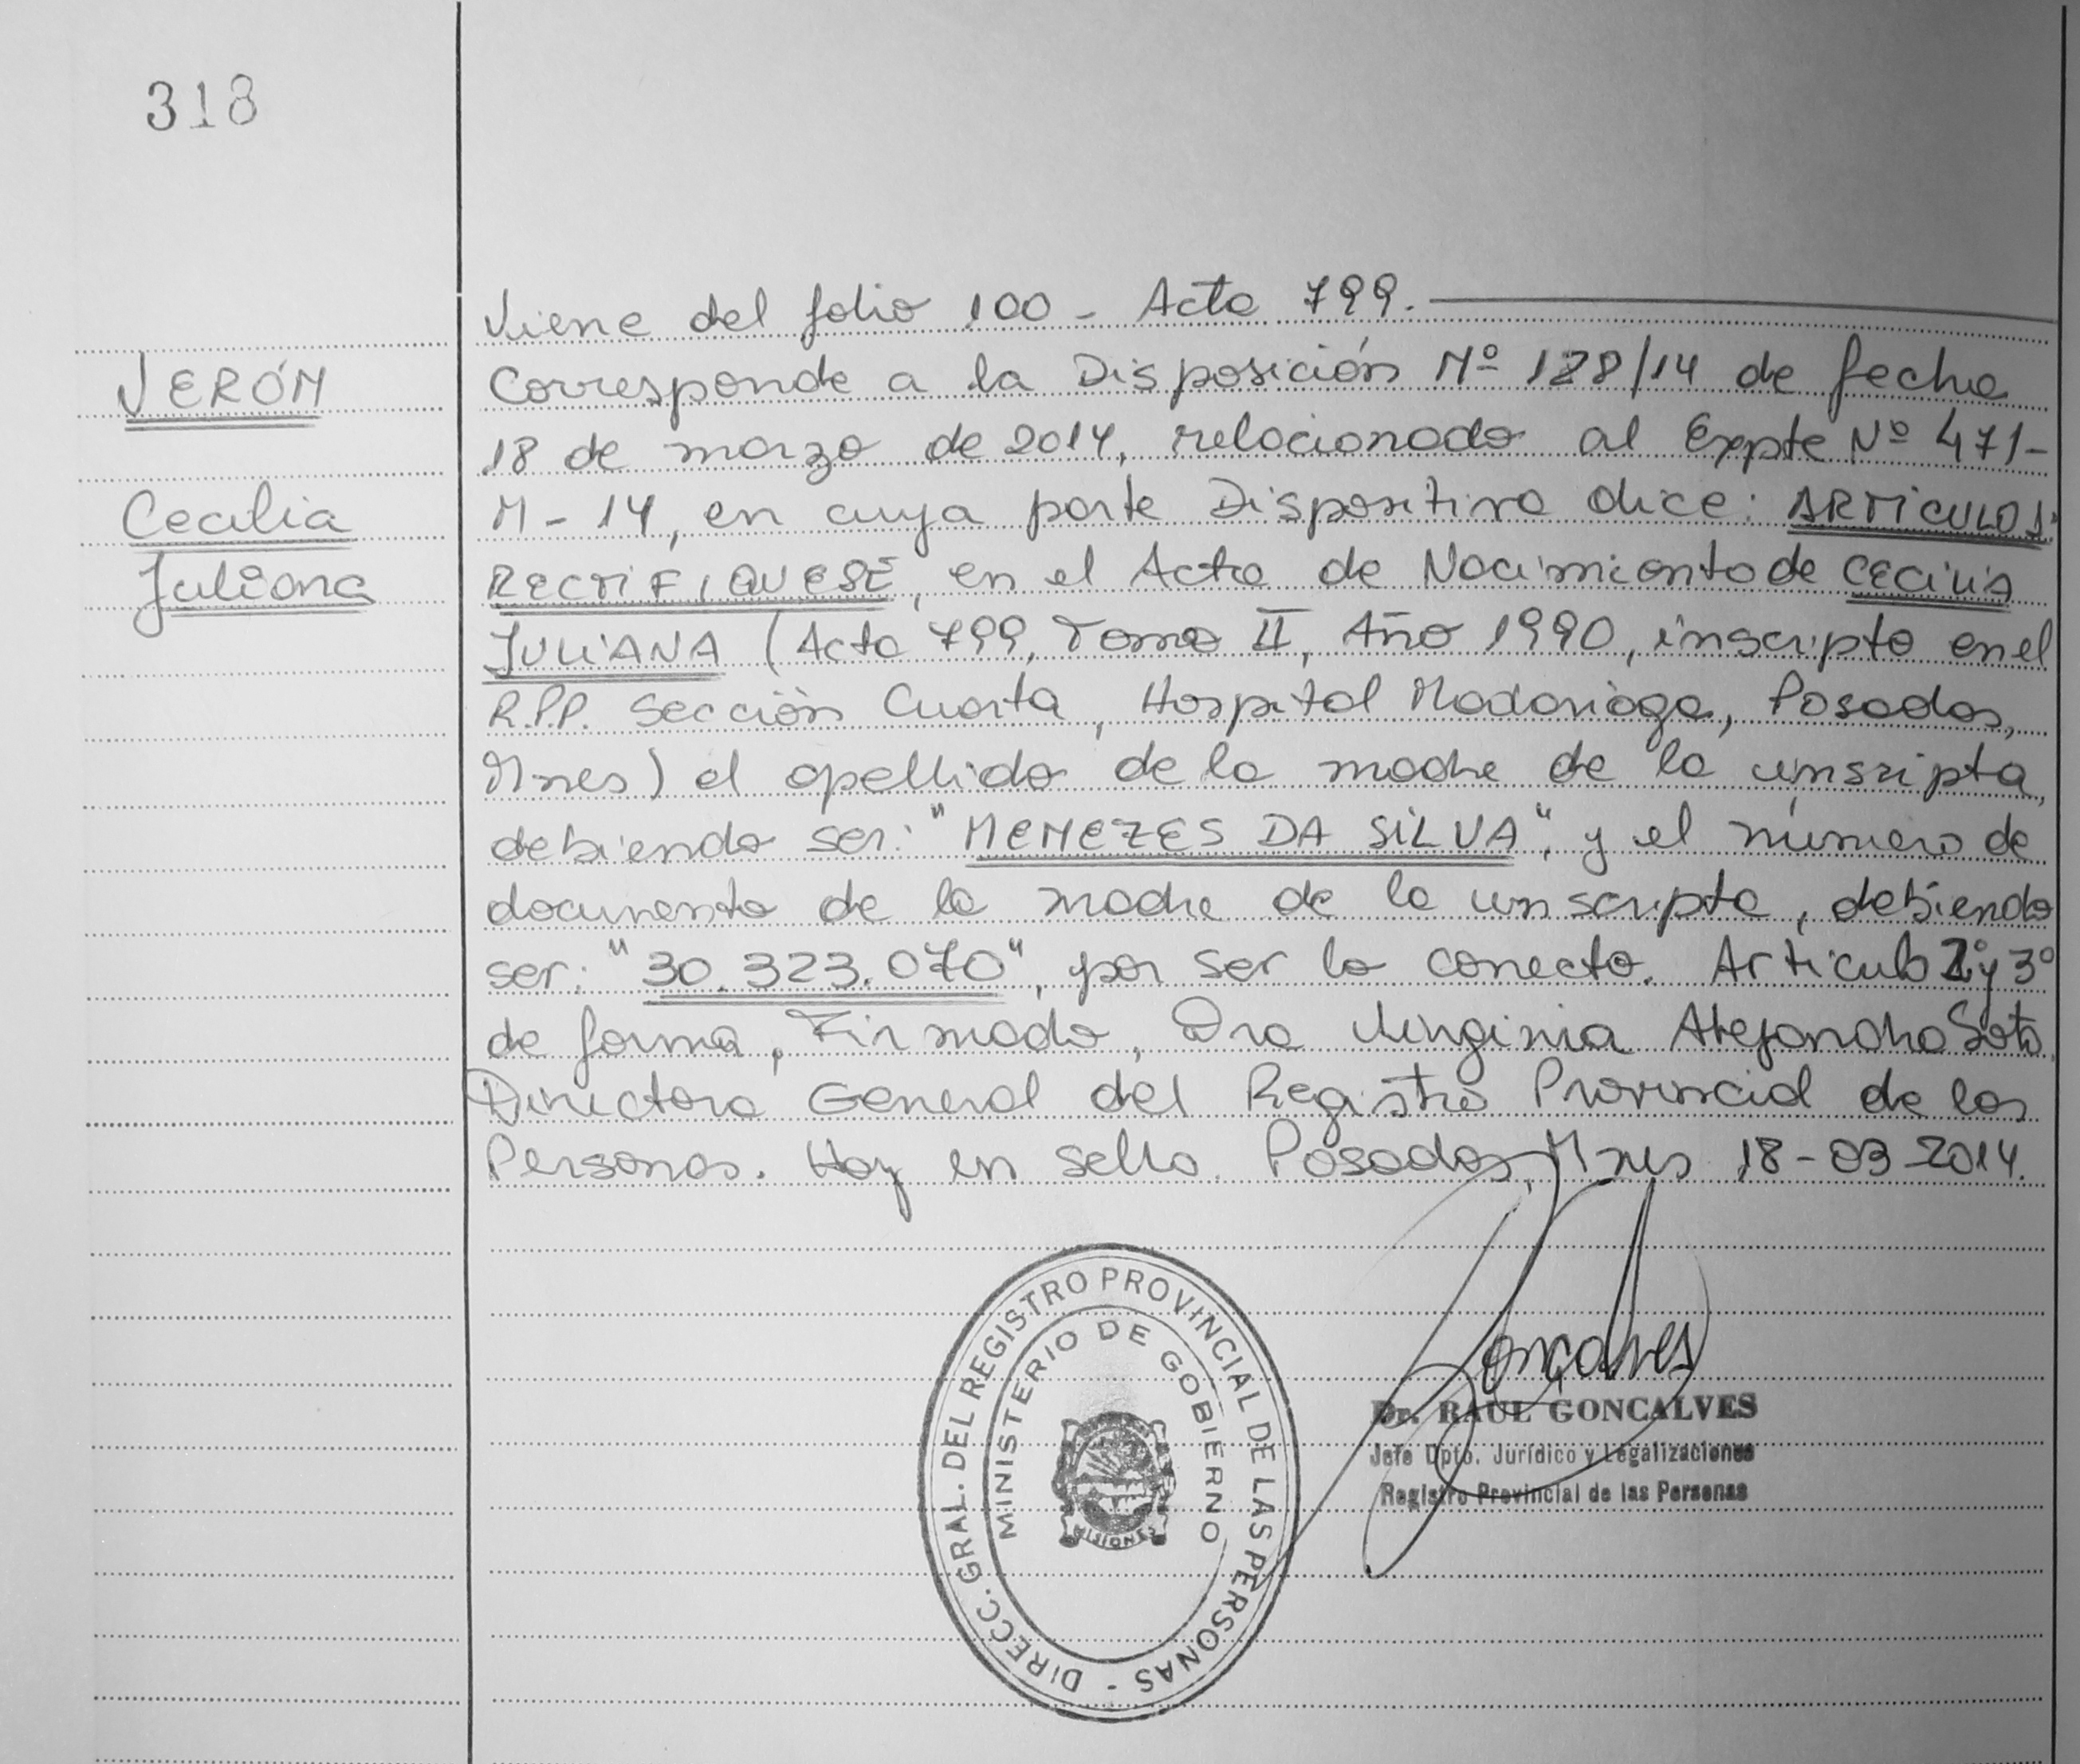 318
Viene del folio 100 - Acta 799.
VERÓN
Corresponde a la Disposición Nº 128/14 de fecha
18 de marzo de 2014, relacionado al Expte Nº 471-
Cecilia
M-14, en cuya parte Dispositiva dice: ARTICULO 1º
Juliana
RECTIFIQUESE, en el Acta de Nacimiento de CECILIA
JULIANA (Acta 799, Tomo II, Año 1990, inscripta en el
R.P.P. Sección Cuarta, Hospital Madariaga, Posadas,
Mnes) el apellido de la madre de la inscripta,
debiendo ser: "MENEZES DA SILVA", y el número de
documento de la madre de la inscripta, debiendo
ser: "30.323.070", por ser lo correcto. Articulo 2º y 3º
de forma, Firmado, Dra Virginia Alejandra Soto
Directora General del Registro Provincial de las
Personas. Hay en sello. Posadas, Mnes 18-03-2014.
DIRECC. GRAL. DEL REGISTRO PROVINCIAL DE LAS PERSONAS -
MINISTERIO DE GOBIERNO
MISIONES
Goncalves
Dr. RAUL GONCALVES
Jefe Dpto. Jurídico y Legalizaciones
Registro Provincial de las Personas